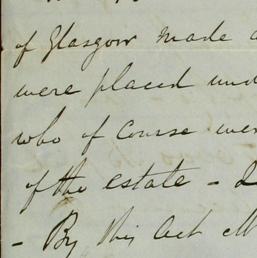 of Glasgow made
were placed und
who of course wer
of the estate -
- By this Act